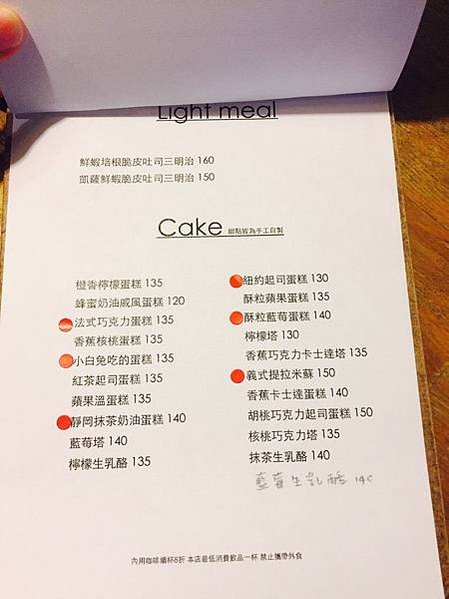 Light meal
鮮蝦培根脆皮吐司三明治 160
凱薩鮮蝦脆皮吐司三明治 150
Cake 甜點皆為手工自製
橙香檸檬蛋糕 135
蜂蜜奶油戚風蛋糕 120
法式巧克力蛋糕 135
香蕉核桃蛋糕 135
小白兔吃的蛋糕 135
紅茶起司蛋糕 135
蘋果溫蛋糕 135
靜岡抹茶奶油蛋糕 140
藍莓塔 140
檸檬生乳酪 135
紐約起司蛋糕 130
酥粒蘋果蛋糕 135
酥粒藍莓蛋糕 140
檸檬塔 130
香蕉巧克力卡士達塔 135
義式提拉米蘇 150
香蕉卡士達蛋糕 140
胡桃巧克力起司蛋糕 150
核桃巧克力塔 135
抹茶生乳酪 140
藍莓生乳酪 140
內用咖啡續杯8折 本店最低消費飲品一杯 禁止攜帶外食